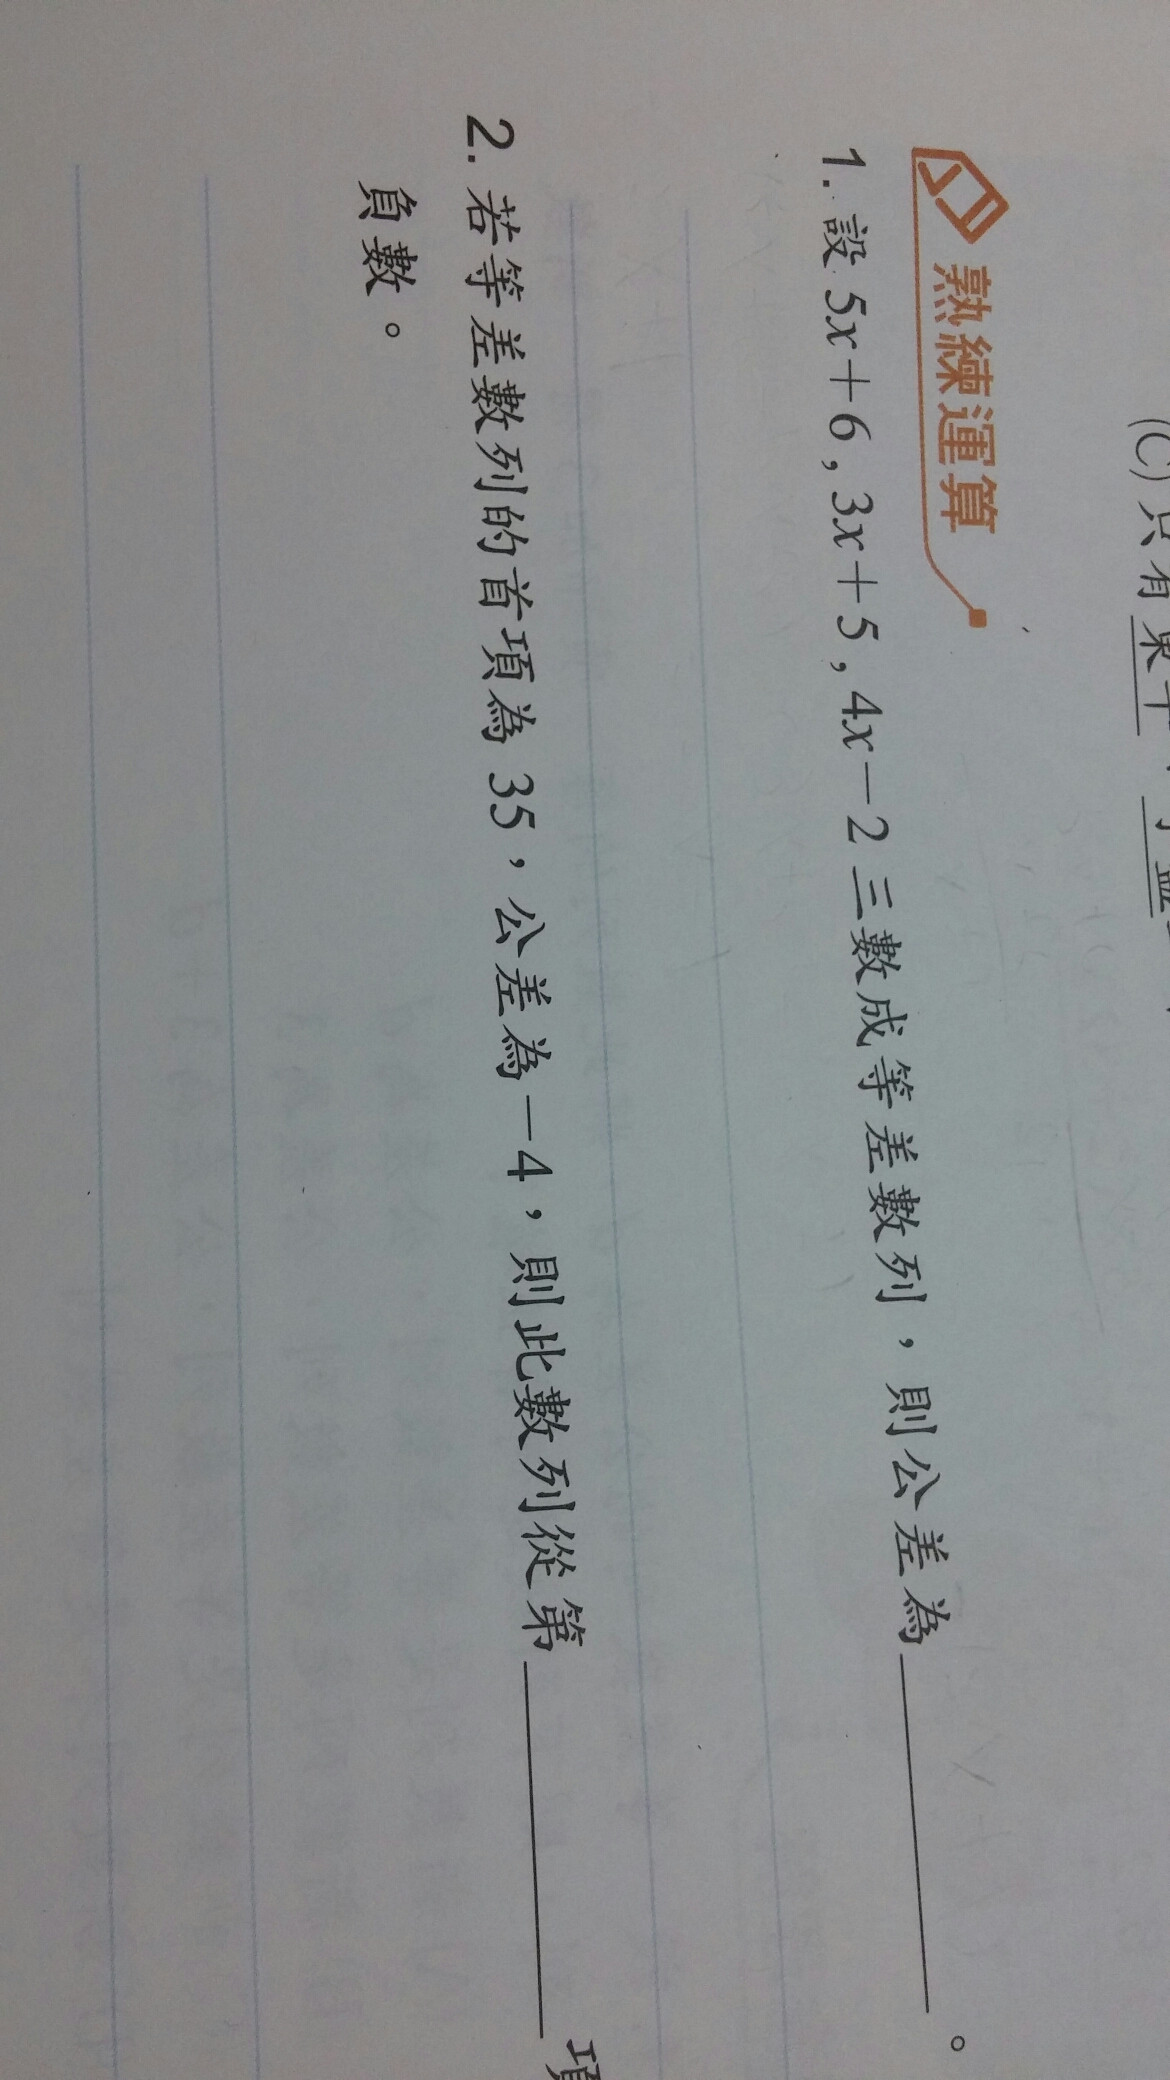 (C)只有
熟練運算
1. 設 5x+6,3x+5,4x-2 三數成等差數列,則公差為______。
2. 若等差數列的首項為 35,公差為-4,則此數列從第______項
負數。